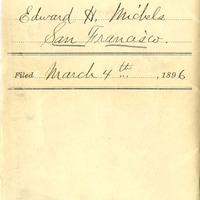 Edward H. Michels
San Francisco.
Filed March 4th , 1896